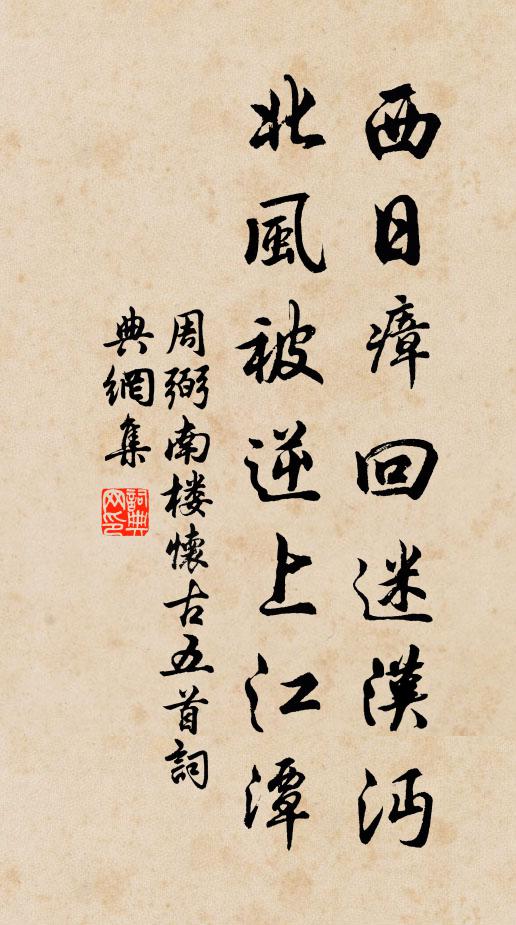 西日瘴回迷漢沔
北風被逆上江潭
周弼南楼懷古五首詞
典網集
詞典网印